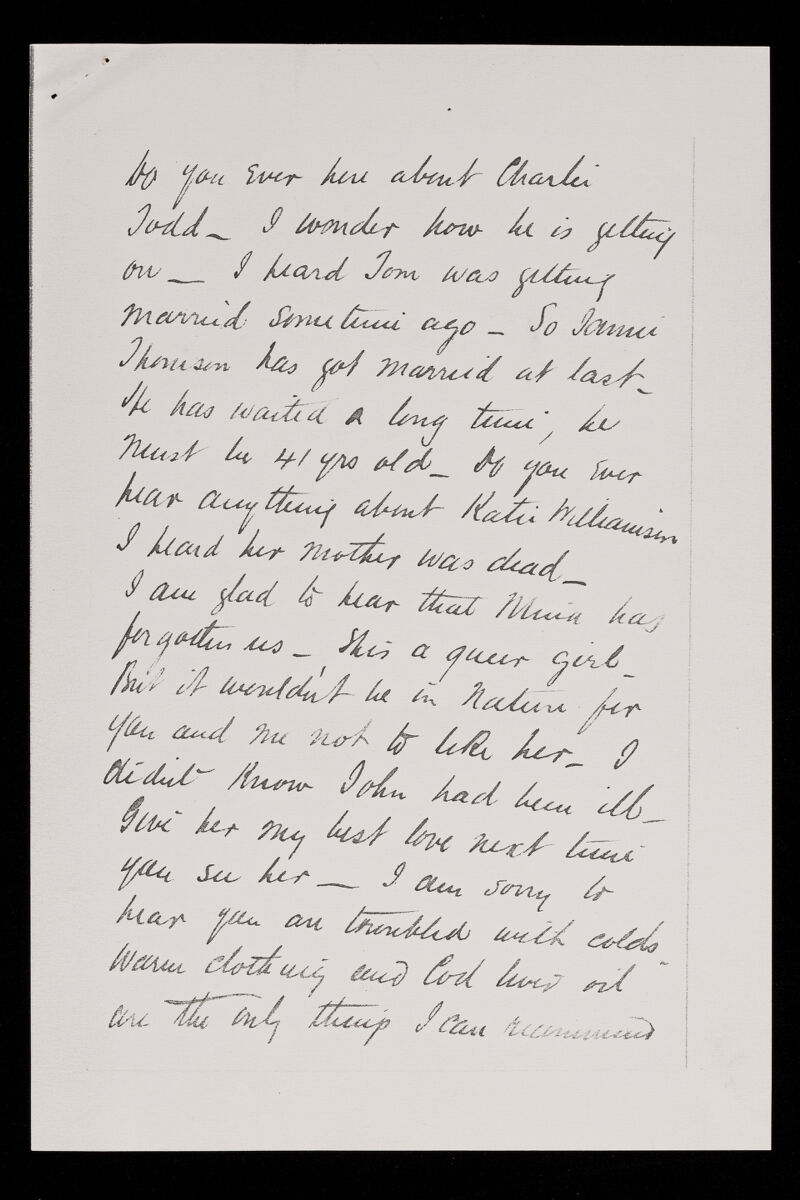 Do you Ever here about Charlie
Todd _ I wonder how he is getting
on _ I heard Tom was getting
married sometime ago _ So Jamie
Thomson has got married at last _
He has waited a long time, he
must be 41 yrs old _ Do you Ever
hear anything about Katie Williamson
I heard her mother was dead _
I am glad to hear that Mina has
forgotten us _ Shes a queer girl _
But it wouldn't be in Nature for
you and me not to like her _ I
didnt Know John had been ill _
Give her my best love next time
you see her _ I am sorry to
hear you are troubled with colds
Warm clothing and Cod liver oil
are the only things I can recommend